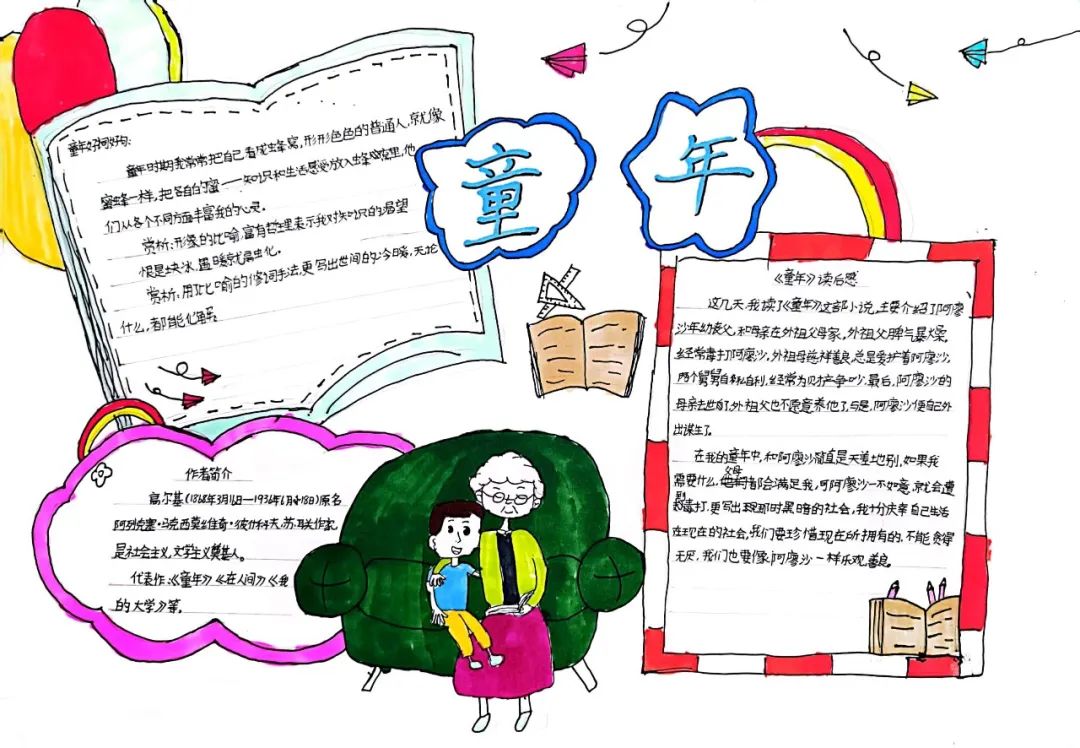 童年
童年好词好句:
童年时期我常常把自己看成蜂窝,形形色色的普通人,就像
蜜蜂一样,把各自的蜜——知识和生活感受放入蜂窝里,他
们从各个不同方面丰富我的心灵。
赏析:形象的比喻,富有哲理表示我对知识的渴望
恨是块冰,遇暖就融化。
赏析:用比喻的修词手法,更写出世间的冷暖,无论
什么,都能化解。
作者简介
高尔基(1868年3月16日—1936年6月18日)原名
阿列克塞·马克西莫维奇·彼什科夫,苏联作家
是社会主义,文学主义奠基人。
代表作:《童年》《在人间》《我
的大学》等。
《童年》读后感
这几天,我读了《童年》这部小说,主要介绍了阿廖
沙年幼丧父,和母亲在外祖父母家,外祖父脾气暴燥,
经常毒打阿廖沙,外祖母慈祥善良,总是爱护着阿廖沙,
两个舅舅自私自利,经常为财产争吵.最后,阿廖沙的
母亲去世了,外祖父也不愿意养他了,与是,阿廖沙便自己外
出谋生了。
在我的童年中,和阿廖沙简直是天差地别,如果我
需要什么,父母都会满足我,可阿廖沙一不如意,就会遭
毒打,更写出现那时黑暗的社会,我十分庆幸自己生活
在现在的社会,我们要珍惜现在所拥有的,不能贪得
无厌,我们也要像阿廖沙一样乐观,善良。